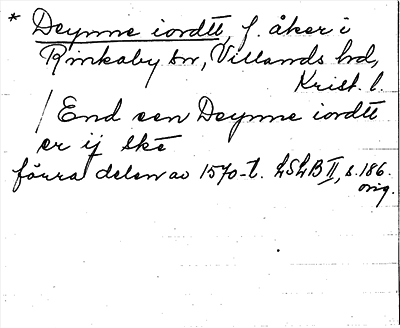 * Deynne iordtt, f. åker i
Rinkaby sn, Villands hd,
Krist. l.
/ End een Deynne iordtt
er ij skē
förra delen av 1570-t. LSLB II, s. 186.
orig.